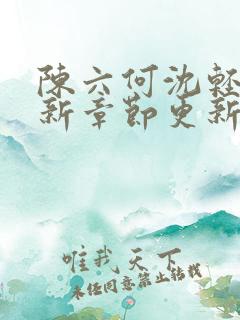 陳六何沈輕
新章節更新
唯我天下
未經同意禁止轉載